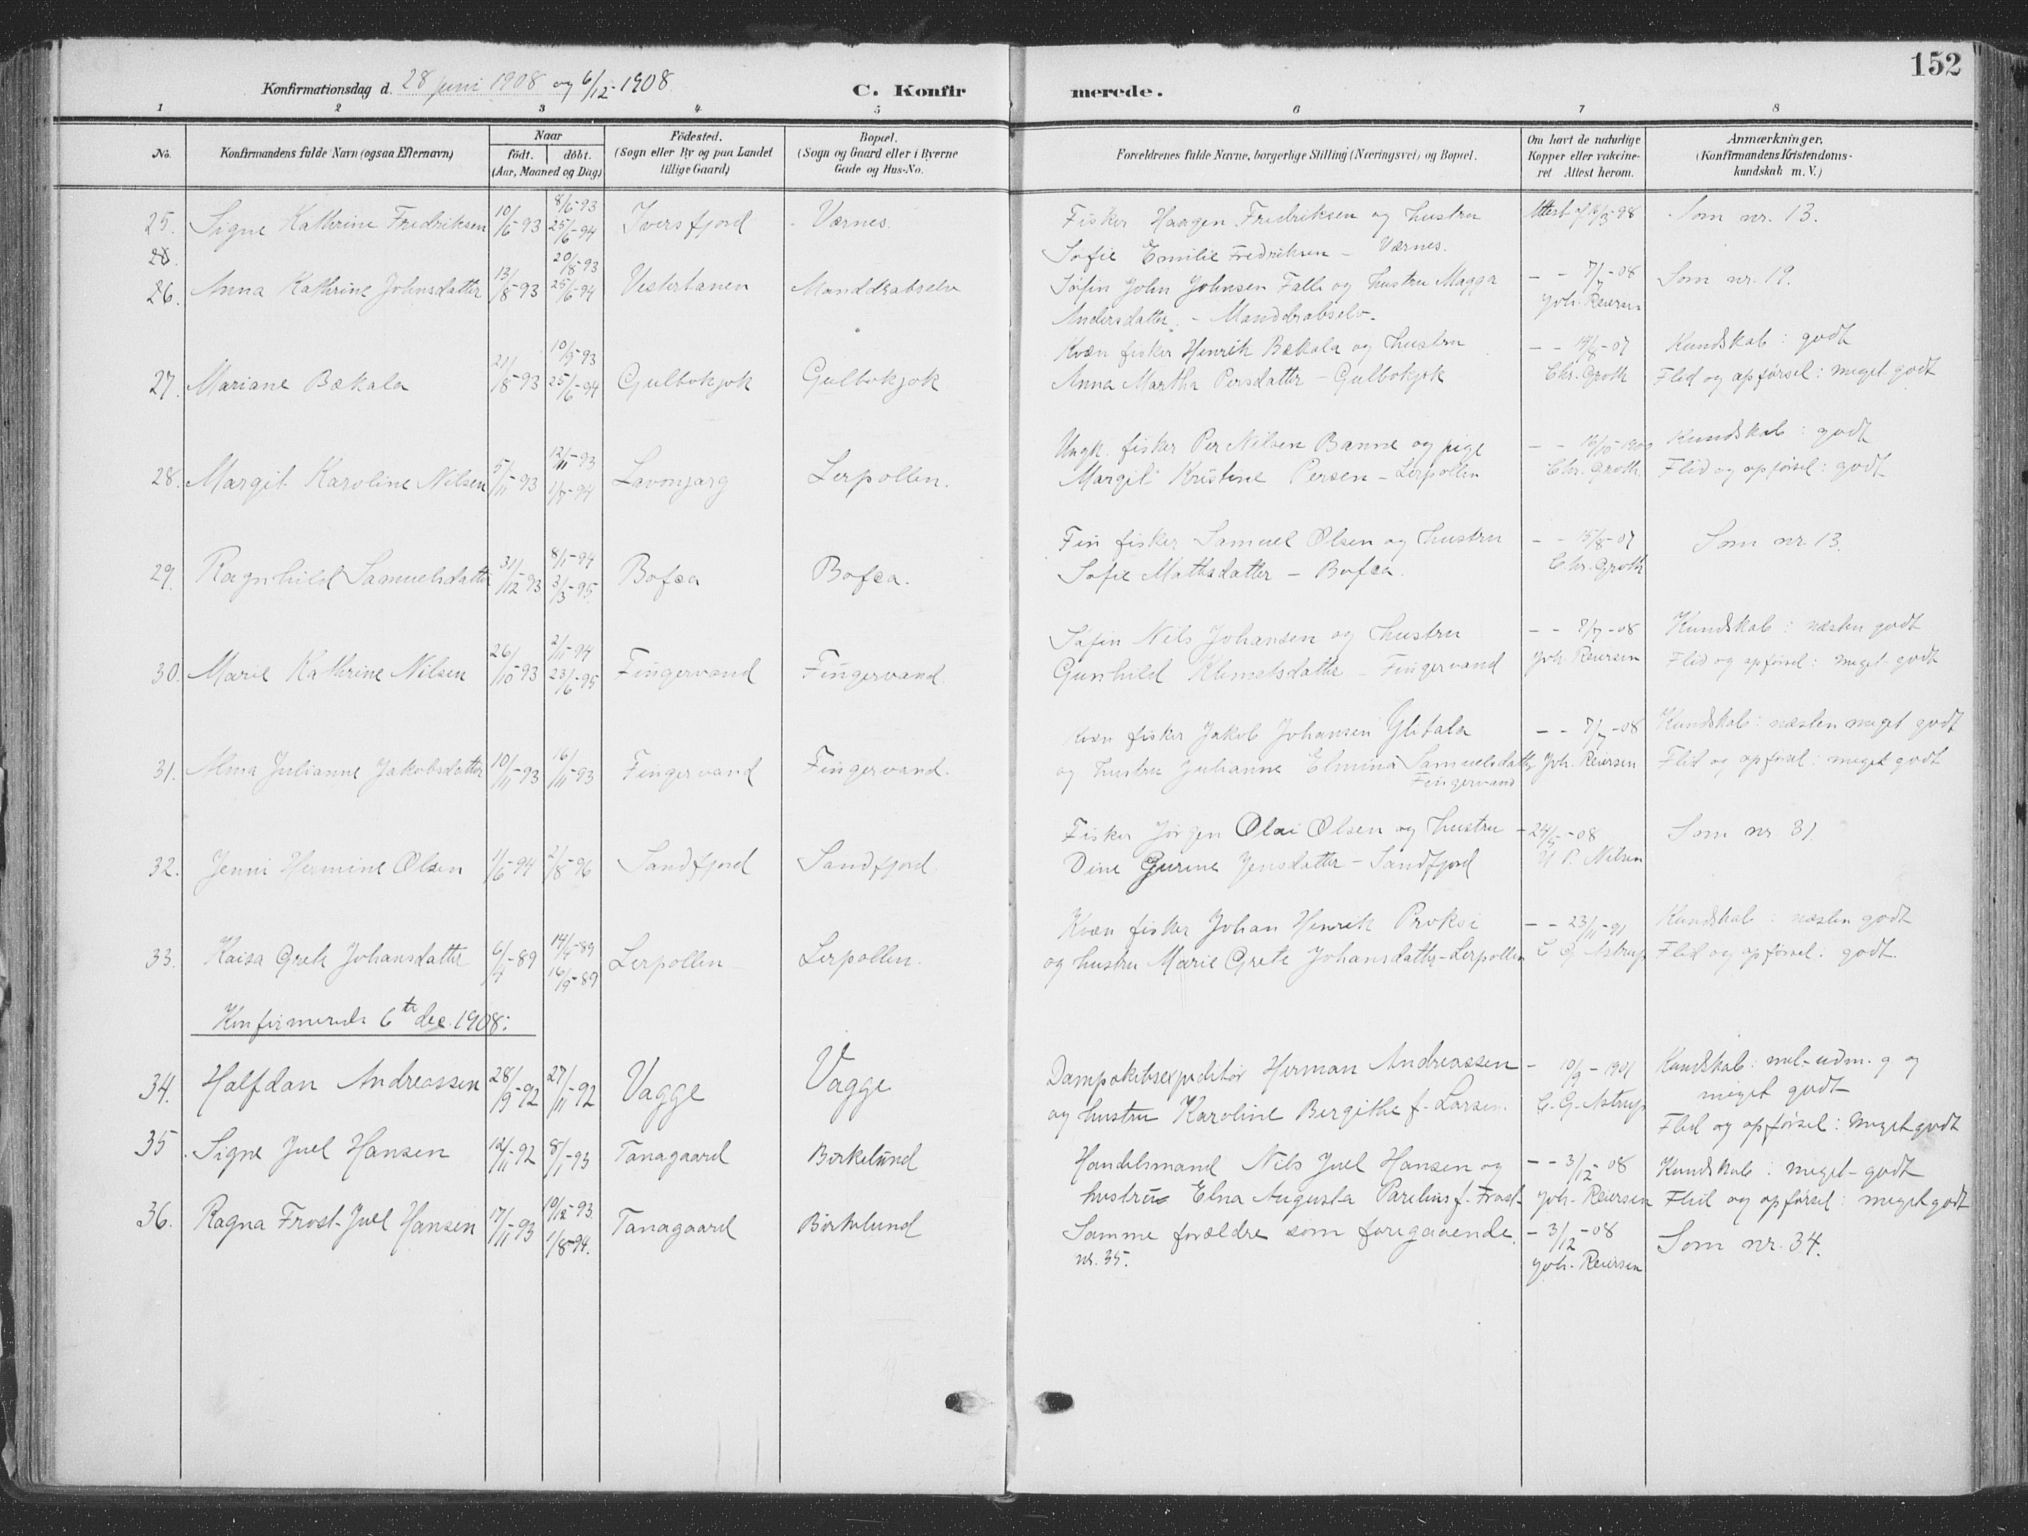 152
Konfirmationsdag d. 28 juni 1908 og 6/12-1908
C. Konfir
merede.
1 2 3 4 5 6 7 8
No. Konfirmandens fulde Navn (ogsaa Efternavn) Naar födt. döbt. (Aar, Maaned og Dag) Födested. (Sogn eller By og paa Landet tillige Gaard) Bopæl. (Sogn og Gaard eller i Byerne Gade og Hus-No. Forældrenes fulde Navne, borgerlige Stilling (Næringsvei) og Bopæl. Om havt de naturlige Kopper eller vakcineret Attest herom. Anmærkninger. (Konfirmandens Kristendomskundskab m. V.)
25. Signe Kathrine Fredriksen 10/6-93 8/6-93 25/6-94 Iversfjord Værnes. Fisker Haagen Fredriksen og hustru Attest f. Som nr. 13.
Sofie Emilie Fredriksen - Værnes.
28.
26. Anna Kathrine Johnsdatter 13/8-93 20/8-93 25/6-94 Vestertanen Manddrabselv Søfin John Johnsen Falli og hustru Magga - - 7/7-08 Som nr. 19.
Andersdatter. - Manddrabselv. Joh. Reiersen
27. Mariane Bækala 21/8-93 10/9-93 25/6-94 Gulbokjok Gulbokjok Kvæn fisker Henrik Bækala og hustru - - 14/8-07 Kundskab: godt
Anna Martha Persdatter - Gulbokjok Chr. Groth Flid og opførsel: meget godt
28. Margit Karoline Nilsen 5/11-93 12/11-93 1/8-94 Lavonjarg Lerpollen. Ungk. fisker Per Nilsen Banne og pige Kundskab: godt
Margit Kristine Persen - Lerpollen Chr. Groth. Flid og opførsel: godt
29. Ragnhild Samuelsdatter 31/12-93 8/1-94 3/3-95. Bofæa Bofæa. Fin fisker Samuel Olsen og hustru - - 15/8-07 Som nr 13.
Sofie Mathsdatter - Bofæa. Chr. Groth
30. Marie Kathrine Nilsen 26/10-93 2/11-94 23/6-95 Fingervand Fingervand. Søfin Nils Johansen og hustru - - 7/7-08 Kundskab: næsten godt
Gunhild Klemetsdatter - Fingervand Joh. Reiersen Flid og opførsel: meget godt
31. Alma Julianne Jakobsdatter 10/11-93 16/11-93 Fingervand Fingervand. Kvæn fisker Jakob Johansen Ylitala - - 7/7-08 Kundskab: næsten meget godt
og hustru Julianne Elmina Samuelsdatter Joh. Reiersen Flid og opførsel: meget godt
Fingervand
32. Jenni Hermine Olsen 1/6-94 2/8-96 Sandfjord Sandfjord. Fisker Jørgen Olai Olsen og hustru - 24/5-08 Som nr. 31.
Dine Gurine Jensdatter - Sandfjord P. Nilsen
33. Kaisa Grete Johansdatter 6/4-89 14/4-89 16/9-89 Lerpollen Lerpollen. Kvæn fisker Johan Henrik Proksi - - 23/11-91 Kundskab: næsten godt
og hustru Marie Grete Johansdatter - Lerpollen C. G. Astrup Flid og opførsel: godt.
Konfirmerede 6te dec. 1908:
34. Halfdan Andreassen 28/9-92 27/11-92 Vagge Vagge Dampskibsexpeditør Herman Andreassen - 10/9-1901 Kundskab: mel. udm. g og
og hustru Karoline Bergithe f. Larsen. C. G. Astrup meget godt
Flid og opførsel: meget godt
35. Signe Juel Hansen 12/11-92 8/1-93 Tanagaard Birkelund Handelsmand Nils Juel Hansen og - - 3/12-08 Kundskab: meget godt
hustru Elna Augusta Parelius f. Frost- Joh. Reiersen Flid og opførsel: meget godt
36. Ragna Frost-Juel Hansen 17/11-93 19/12-93 1/8-94. Tanagaard Birkelund Samme forældre som foregaaende - 3/12-08 Som nr. 34.
nr. 35. Joh. Reiersen